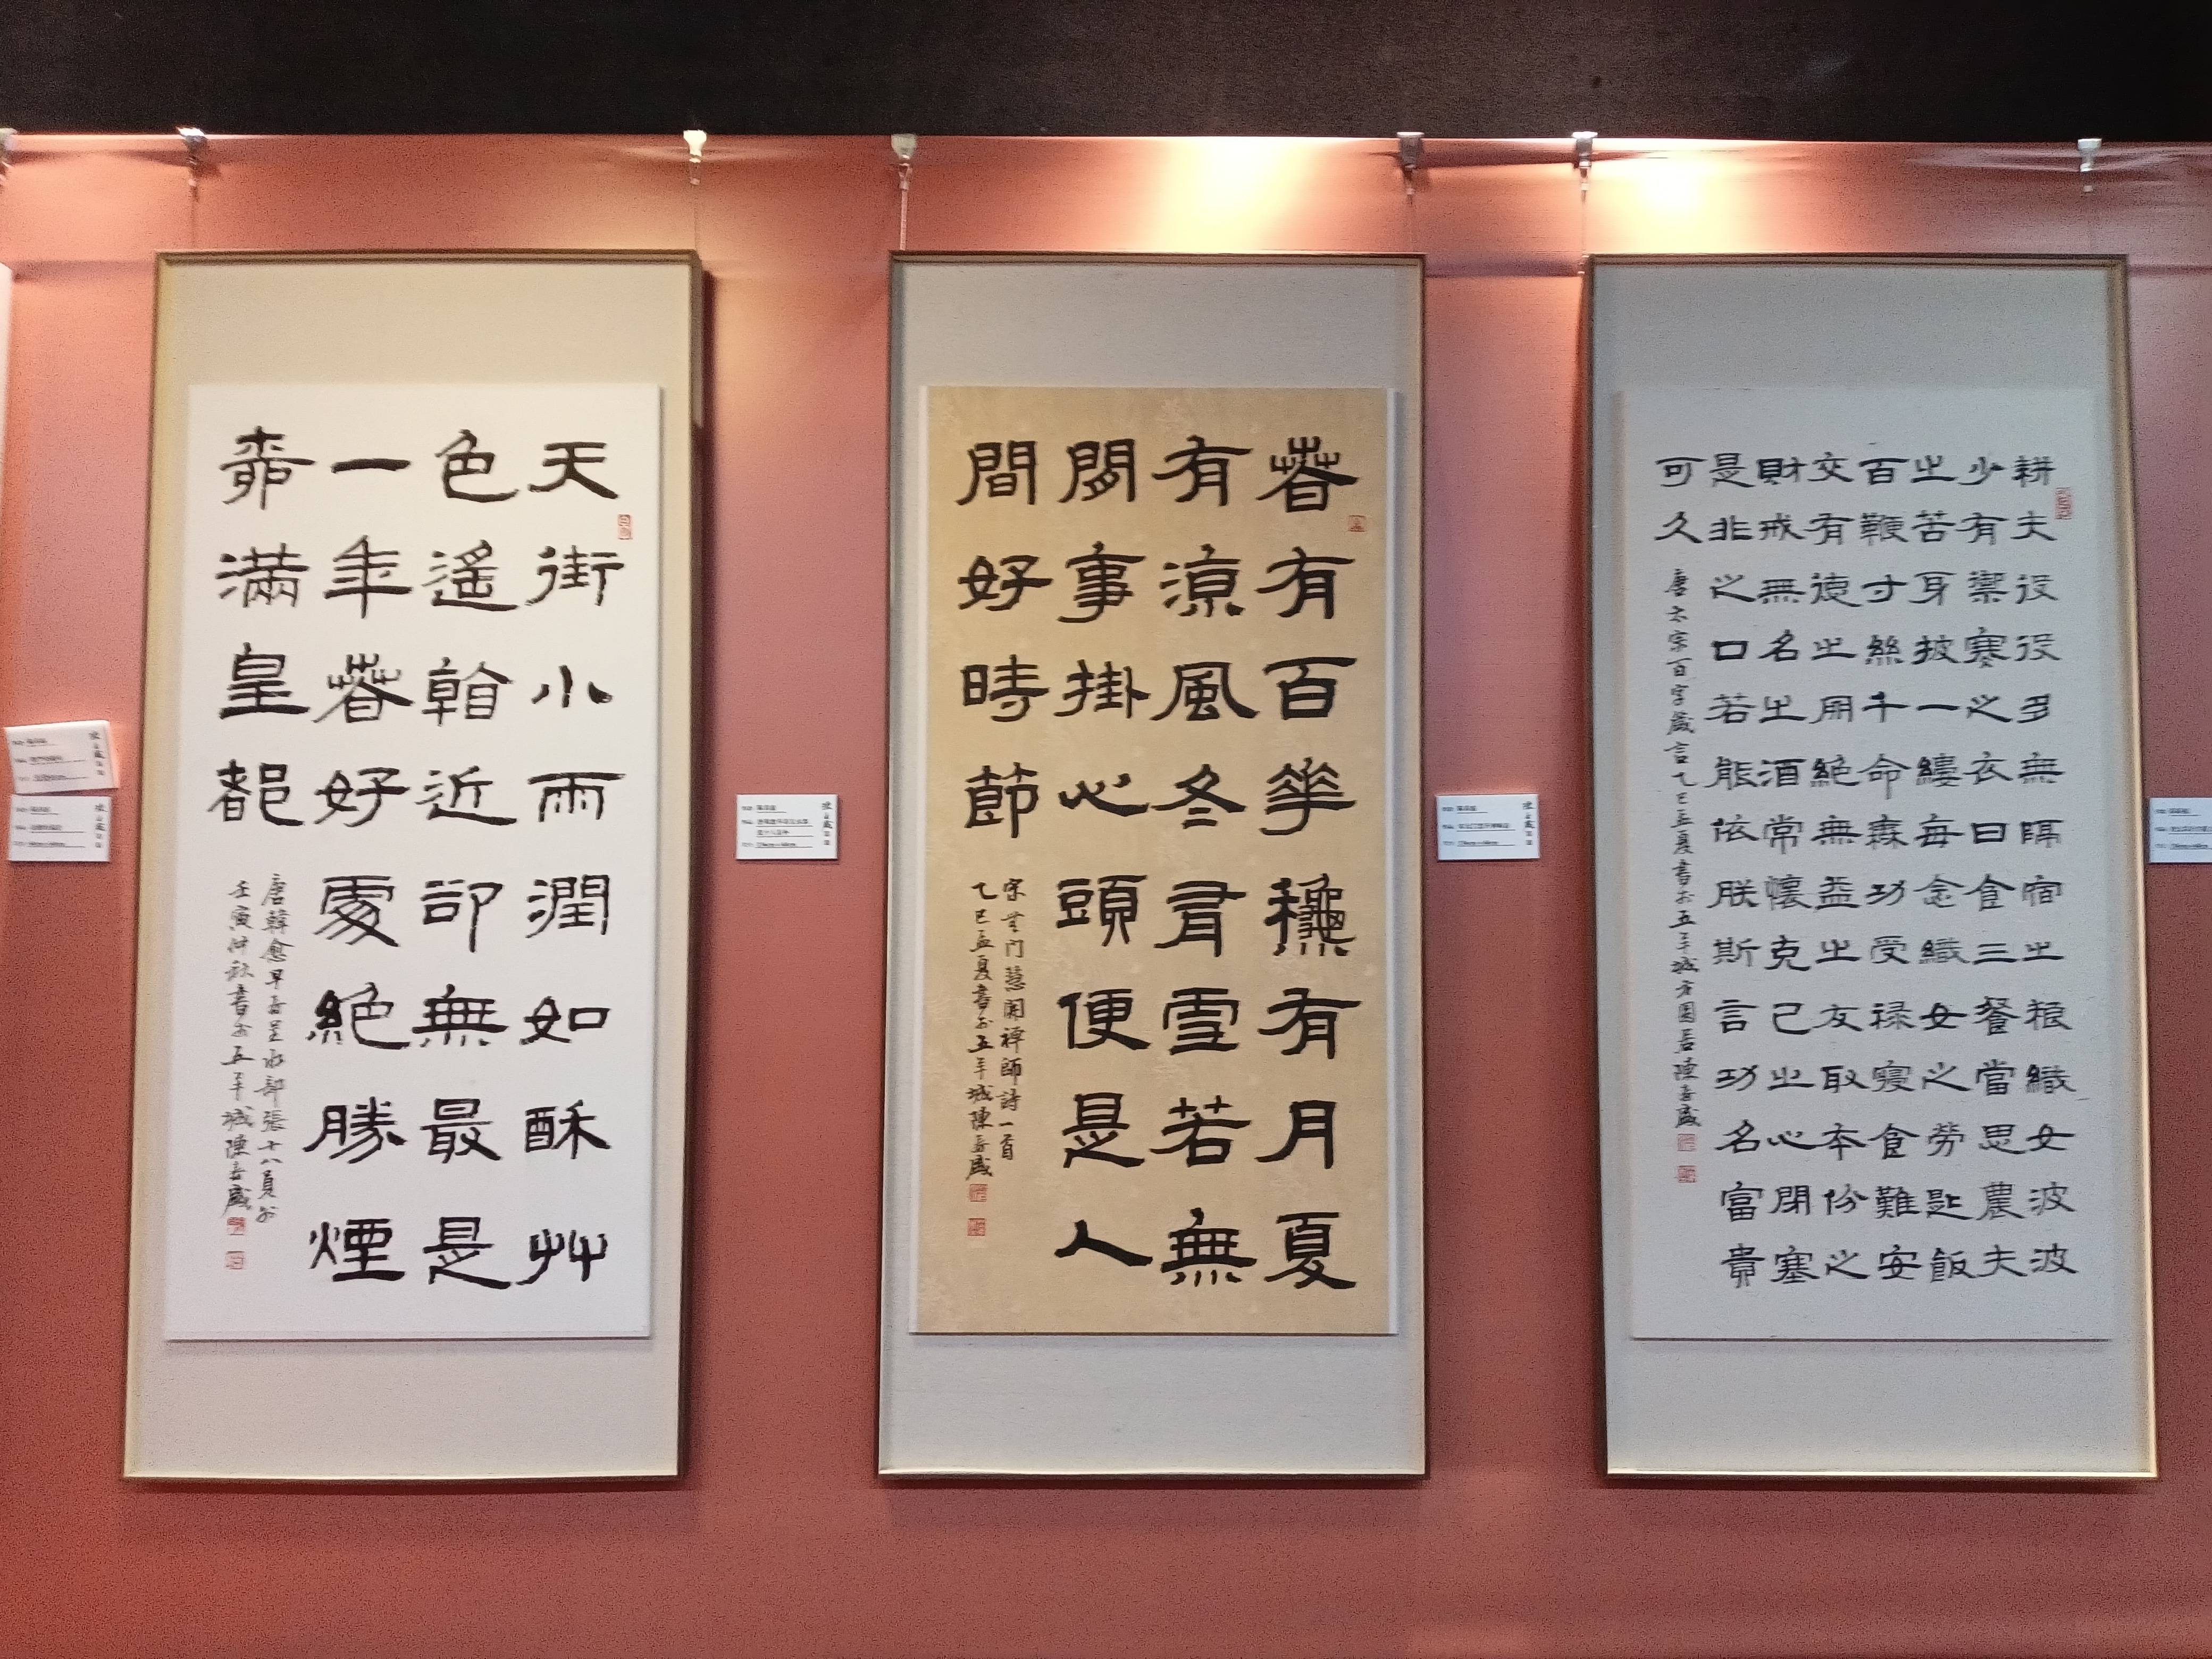 天街小雨潤如酥艸
色遙看近卻無最是
一年春好處絕勝煙
柳滿皇都
唐韓愈早春呈水部張十八員外
壬寅仲秋書於五羊城陳春盛
春有百華龝有月夏
有涼風冬有雪若無
閒事掛心頭便是人
間好時節
宋無门慧開禅師詩一首
乙巳孟夏書於五羊城陳春盛
耕夫役役多無隔宿之粮織女波波
少有禦寒之衣日食三餐當思農夫
之苦身披一縷每念織女之勞匙飯
百鞭寸絲千命無功受祿寢食難安
交有德之朋絕無益之友取本份之
財戒無名之酒常懷克己之心閉塞
是非之口若能依朕斯言功名富貴
可久
唐太宗百字箴言乙巳孟夏書於五羊城方圓居陳春盛